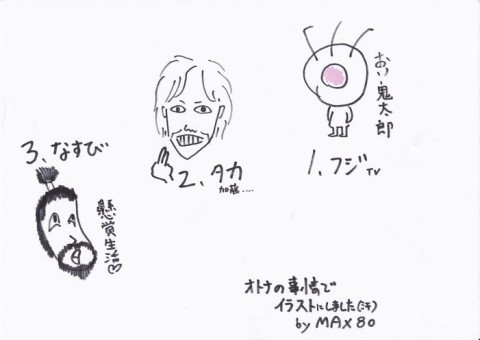 おい鬼太郎
1、フジTV
2、タカ
加藤....
3、なすび
懸賞生活♡
オトナの事情で
イラストにしました(汗)
by MAX80